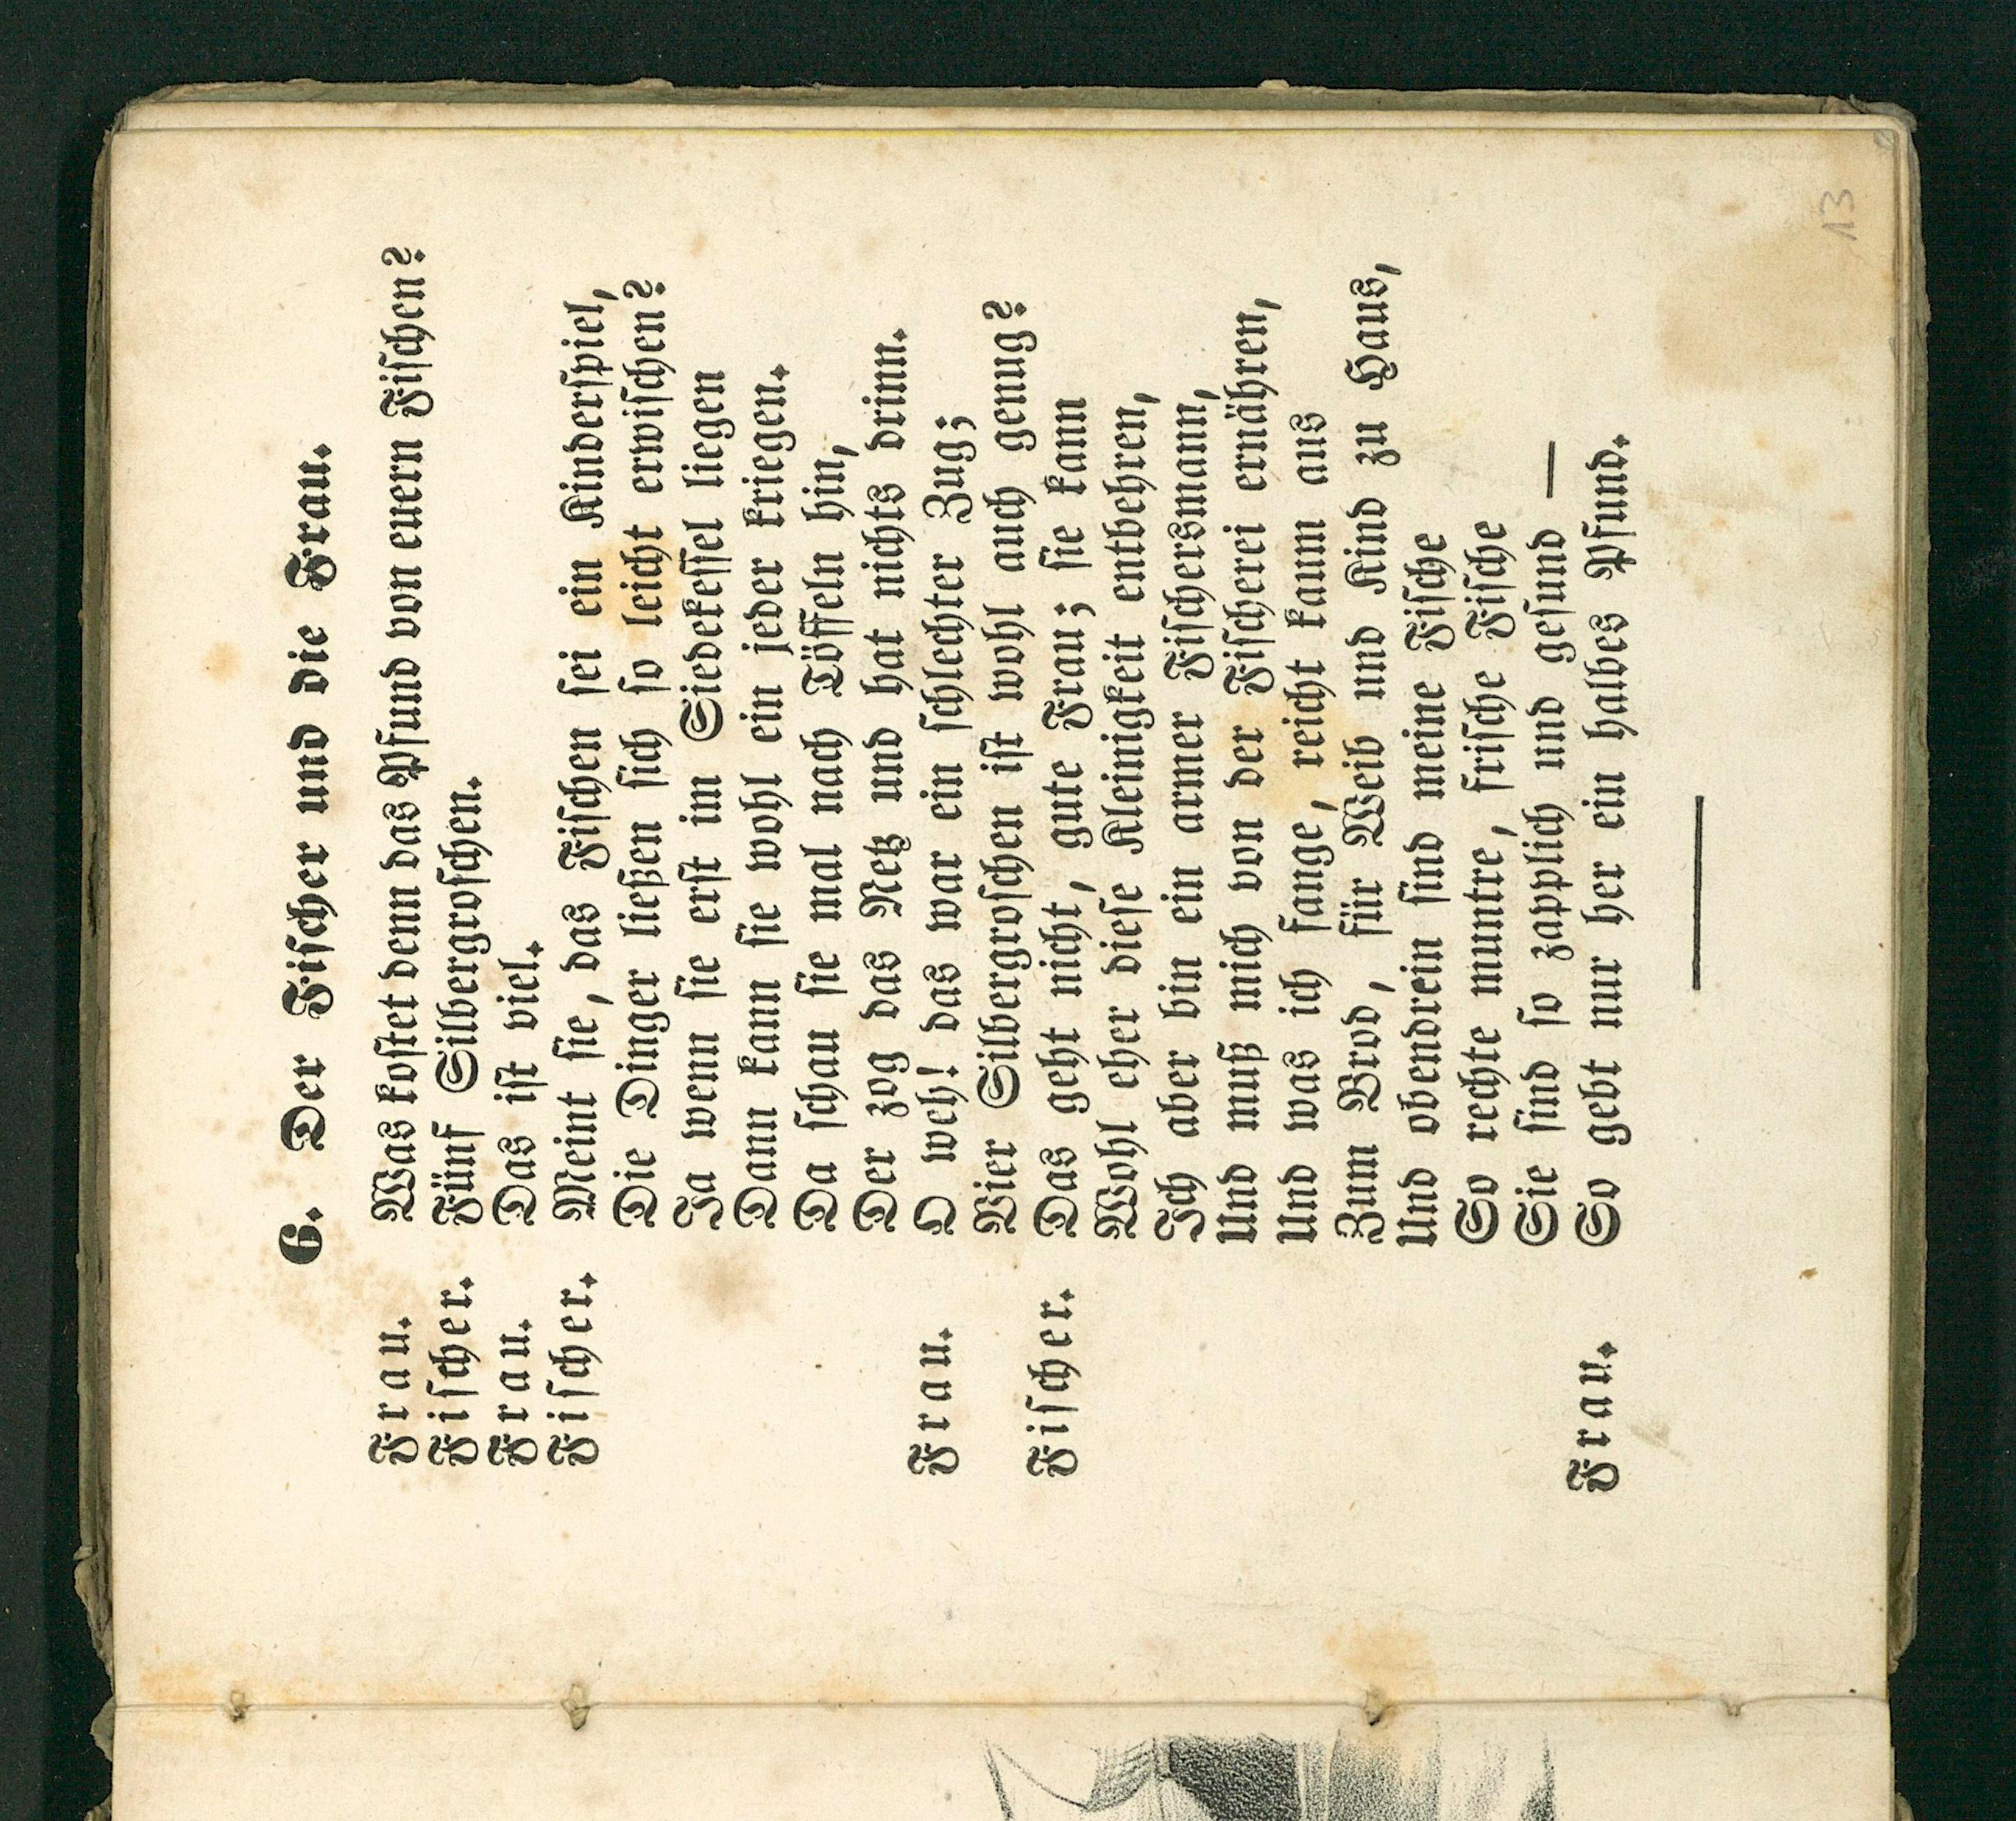 6. Der Fischer und die Frau.
Frau. Was kostet denn das Pfund von euern Fischen?
Fischer. Fünf Silbergroschen.
Frau. Das ist viel.
Fischer. Meint sie, das Fischen sei ein Kinderspiel,
Die Dinger ließen sich so leicht erwischen?
Ja wenn sie erst im Siedekessel liegen
Dann kann sie wohl ein jeder kriegen.
Da schau sie mal nach Töffeln hin,
Der zog das Netz und hat nichts drinn.
Frau. O weh! das war ein schlechter Zug;
Vier Silbergroschen ist wohl auch genug?
Fischer. Das geht nicht, gute Frau; sie kann
Wohl eher diese Kleinigkeit entbehren,
Ich aber bin ein armer Fischersmann,
Und muß mich von der Fischerei ernähren,
Und was ich fange, reicht kaum aus
Zum Brod, für Weib und Kind zu Haus,
Und obendrein sind meine Fische
So rechte muntre, frische Fische
Sie sind so zapplich und gesund —
Frau. So gebt nur her ein halbes Pfund.
13